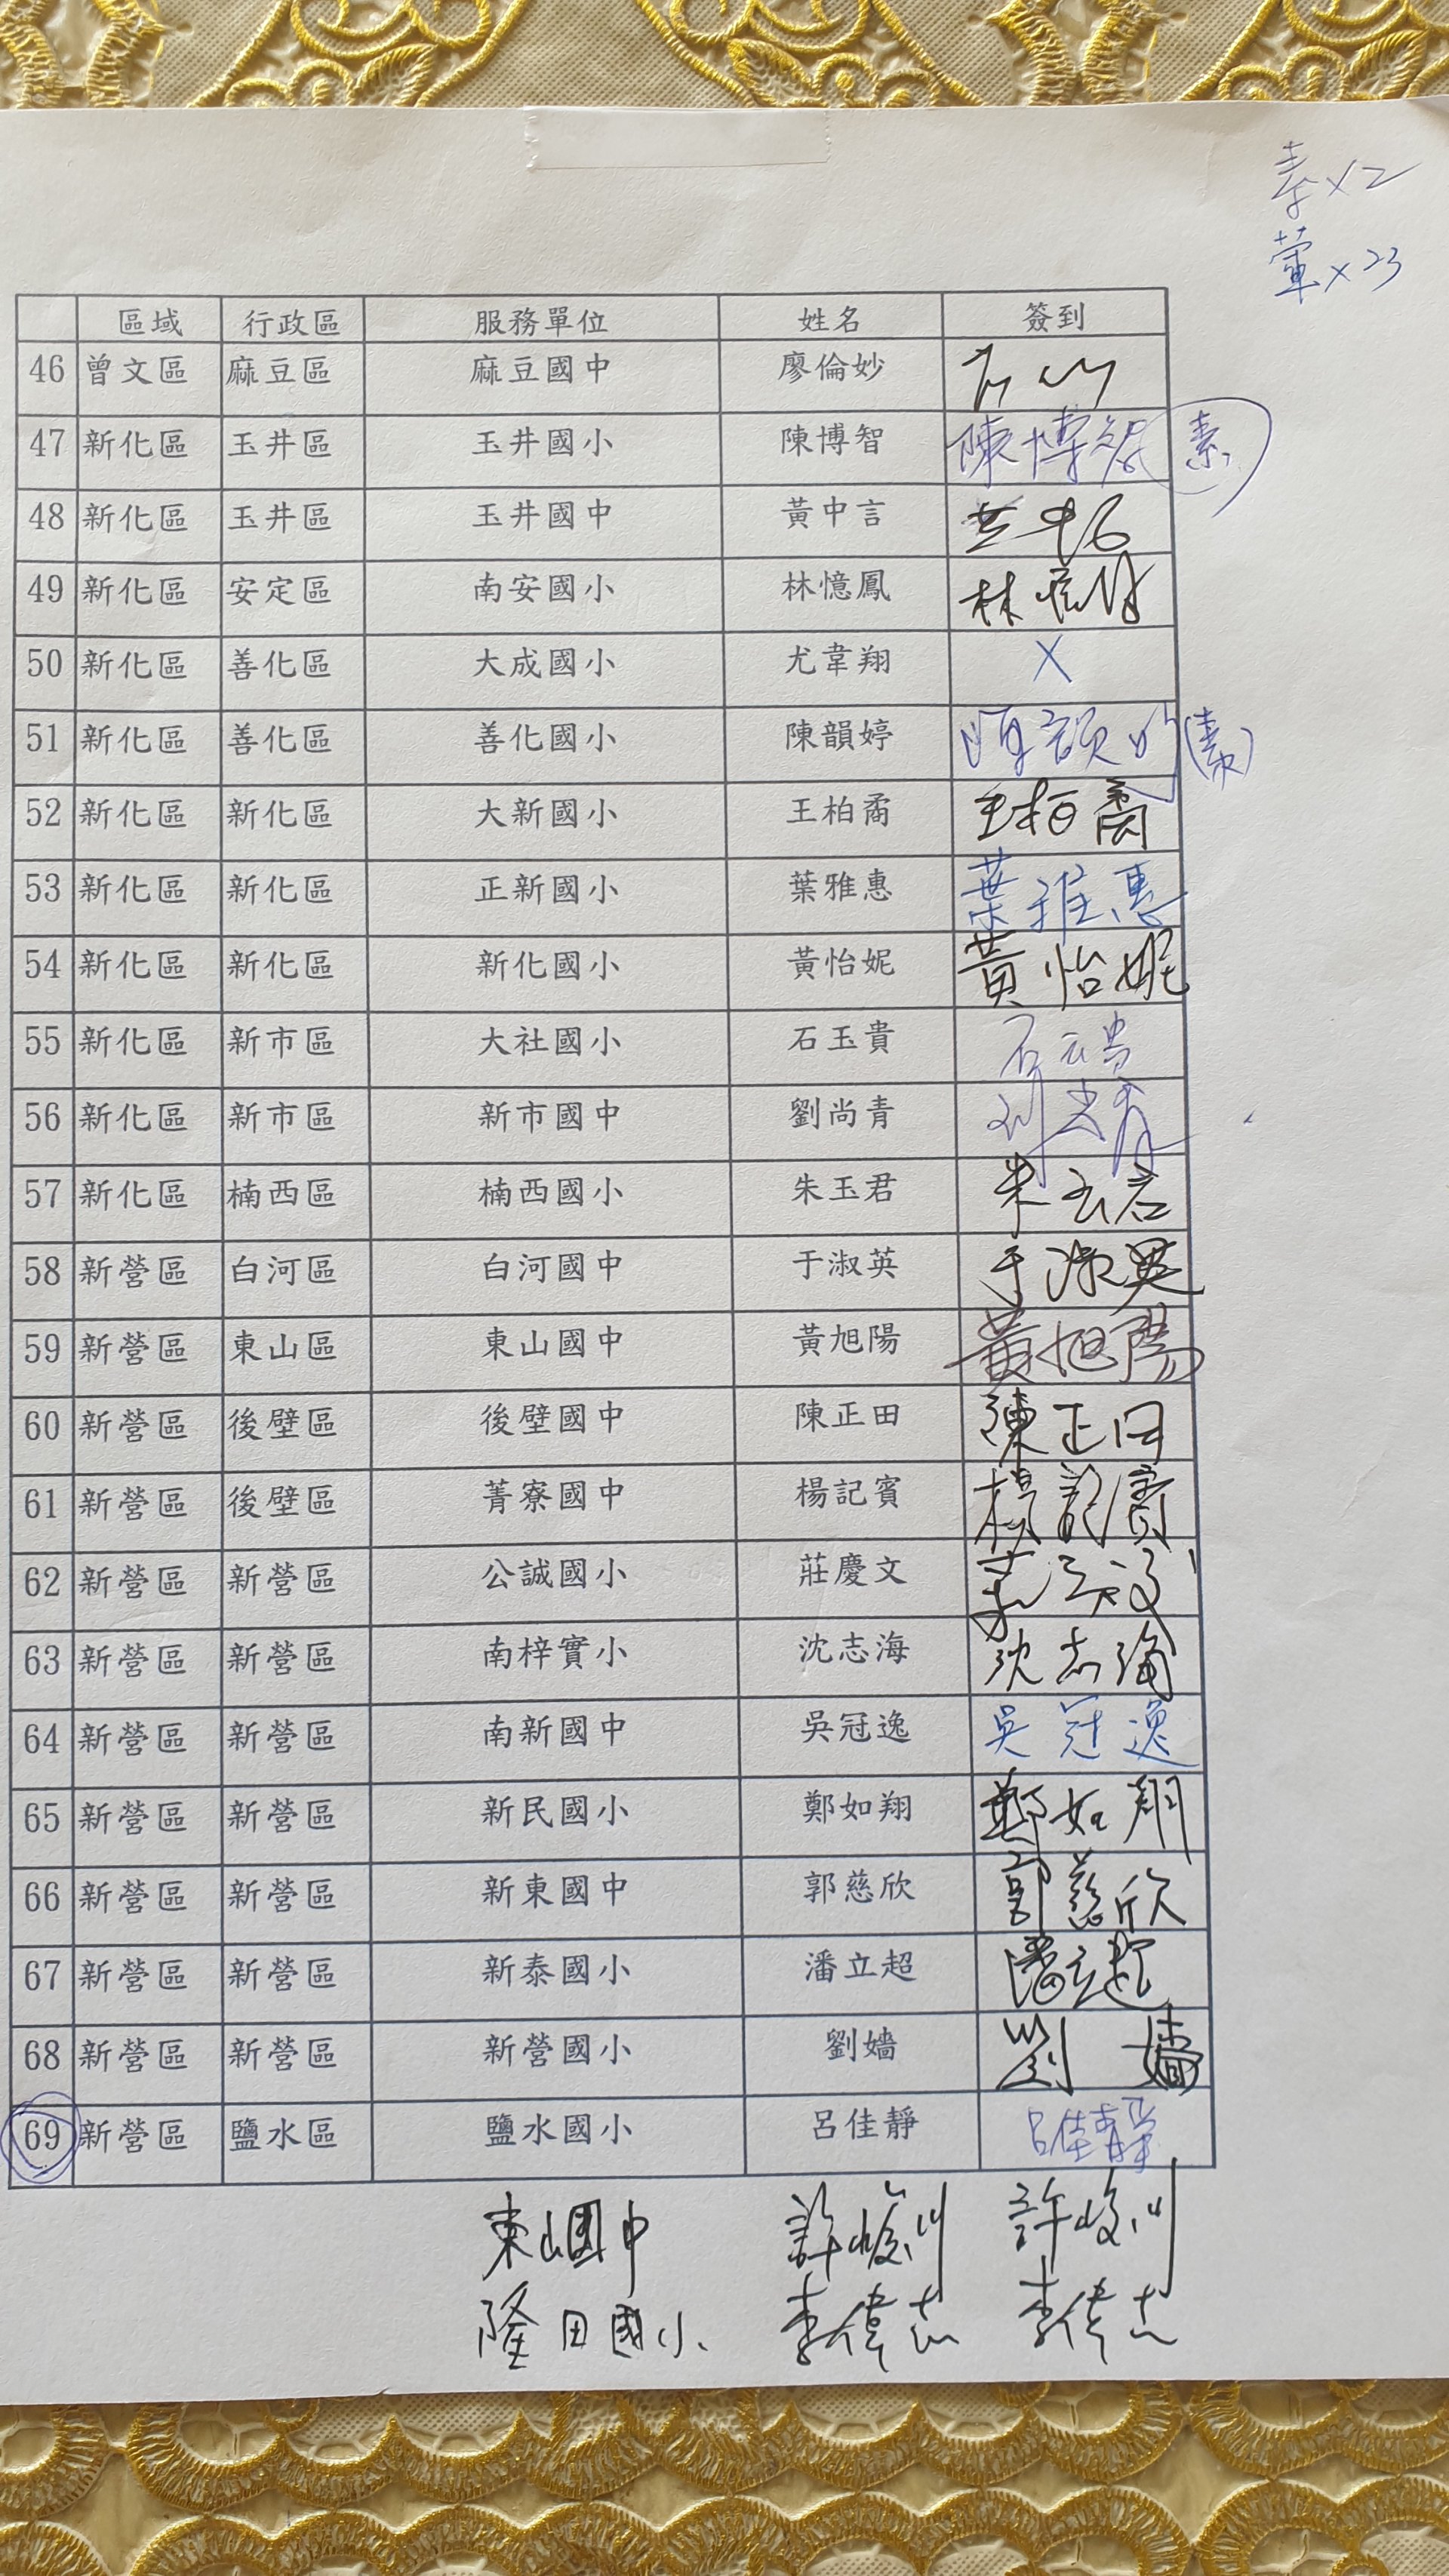 素x2
葷x23
區域 行政區 服務單位 姓名 簽到
46 曾文區 麻豆區 麻豆國中 廖倫妙
47 新化區 玉井區 玉井國小 陳博智 陳博智 素
48 新化區 玉井區 玉井國中 黃中言 黃中言
49 新化區 安定區 南安國小 林憶鳳 林憶鳳
50 新化區 善化區 大成國小 尤韋翔 X
51 新化區 善化區 善化國小 陳韻婷 陳韻婷 (素)
52 新化區 新化區 大新國小 王柏矞 王柏矞
53 新化區 新化區 正新國小 葉雅惠 葉雅惠
54 新化區 新化區 新化國小 黃怡妮 黃怡妮
55 新化區 新市區 大社國小 石玉貴 石玉貴
56 新化區 新市區 新市國中 劉尚青 刘尚青
57 新化區 楠西區 楠西國小 朱玉君 朱玉君
58 新營區 白河區 白河國中 于淑英 于淑英
59 新營區 東山區 東山國中 黃旭陽 黃旭陽
60 新營區 後壁區 後壁國中 陳正田 陳正田
61 新營區 後壁區 菁寮國中 楊記賓 楊記賓
62 新營區 新營區 公誠國小 莊慶文
63 新營區 新營區 南梓實小 沈志海 沈志海
64 新營區 新營區 南新國中 吳冠逸 吳冠逸
65 新營區 新營區 新民國小 鄭如翔 鄭如翔
66 新營區 新營區 新東國中 郭慈欣 郭慈欣
67 新營區 新營區 新泰國小 潘立超 潘立超
68 新營區 新營區 新營國小 劉嬙 劉嬙
69 新營區 鹽水區 鹽水國小 呂佳靜 呂佳靜
東山國中 許峻川 許峻川
隆田國小 李偉志 李偉志